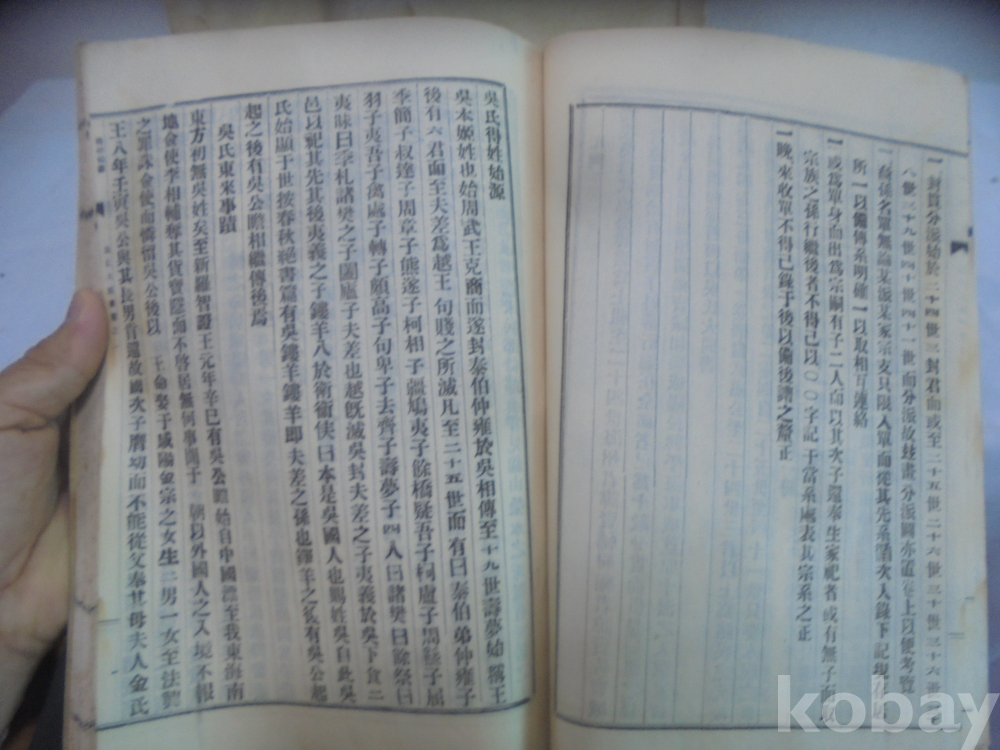 一封貫分派始於二十四世三封君而或至二十五世二十六世三十世三十六世
八世三十九世四十世四十一世而分派故玆畫分派圖亦置卷上以便考覽
一孫名單無論某派某家宗支只限入單而從其先系階次入錄下記現在
所一以備傳系明確一以取相互連絡
一或爲單身而出爲宗嗣有子二人而以其次子還奉生家祀者或有無子而
宗族之孫行繼後者不得已以〇〇字記于當系處表其宗系之正
一晩來收單不得已錄于後以備後譜之釐正
吳氏得姓始源
吳本姬姓也始周武王克商而遂封泰伯仲雍於吳相傳至十九世壽夢始稱王
後有六君而至夫差爲越王句賤之所滅凡至二十五世而有曰泰伯弟仲雍子
季簡子叔達子周章子熊遂子柯相子彊鳩夷子餘橋疑吾子柯盧子周繇子屈
羽子夷吾子禽處子轉子頗高子句卑子去齊子壽夢子四人曰諸樊曰餘祭曰
夷昧曰季札諸樊之子闔廬子夫差也越旣滅吳封夫差之子夷義於吳下食二
邑以祀其先其後夷義之子鏤羊入於衛衛侯曰本是吳國人也賜姓吳自此吳
氏始顯于世按春秋絕書篇有吳鏤羊鏤羊即夫差之孫也鏤羊之後有吳公起
起之後有吳公瞻相繼傳後焉
吳氏東來事蹟
東方初無吳姓矣至新羅智證王元年辛巳有吳公瞻始自中國漂至我東海南
地金使李相補奪其貨寶隱而不啓居無何事聞于 朝以外國人之入境不報
之罪誅金使而憐恤吳公後以 王命娶于咸陽金宗之女生二男一女至法興
王八年壬寅吳公與其長男首還故國次子膺幼而不能從父奉其母夫人金氏